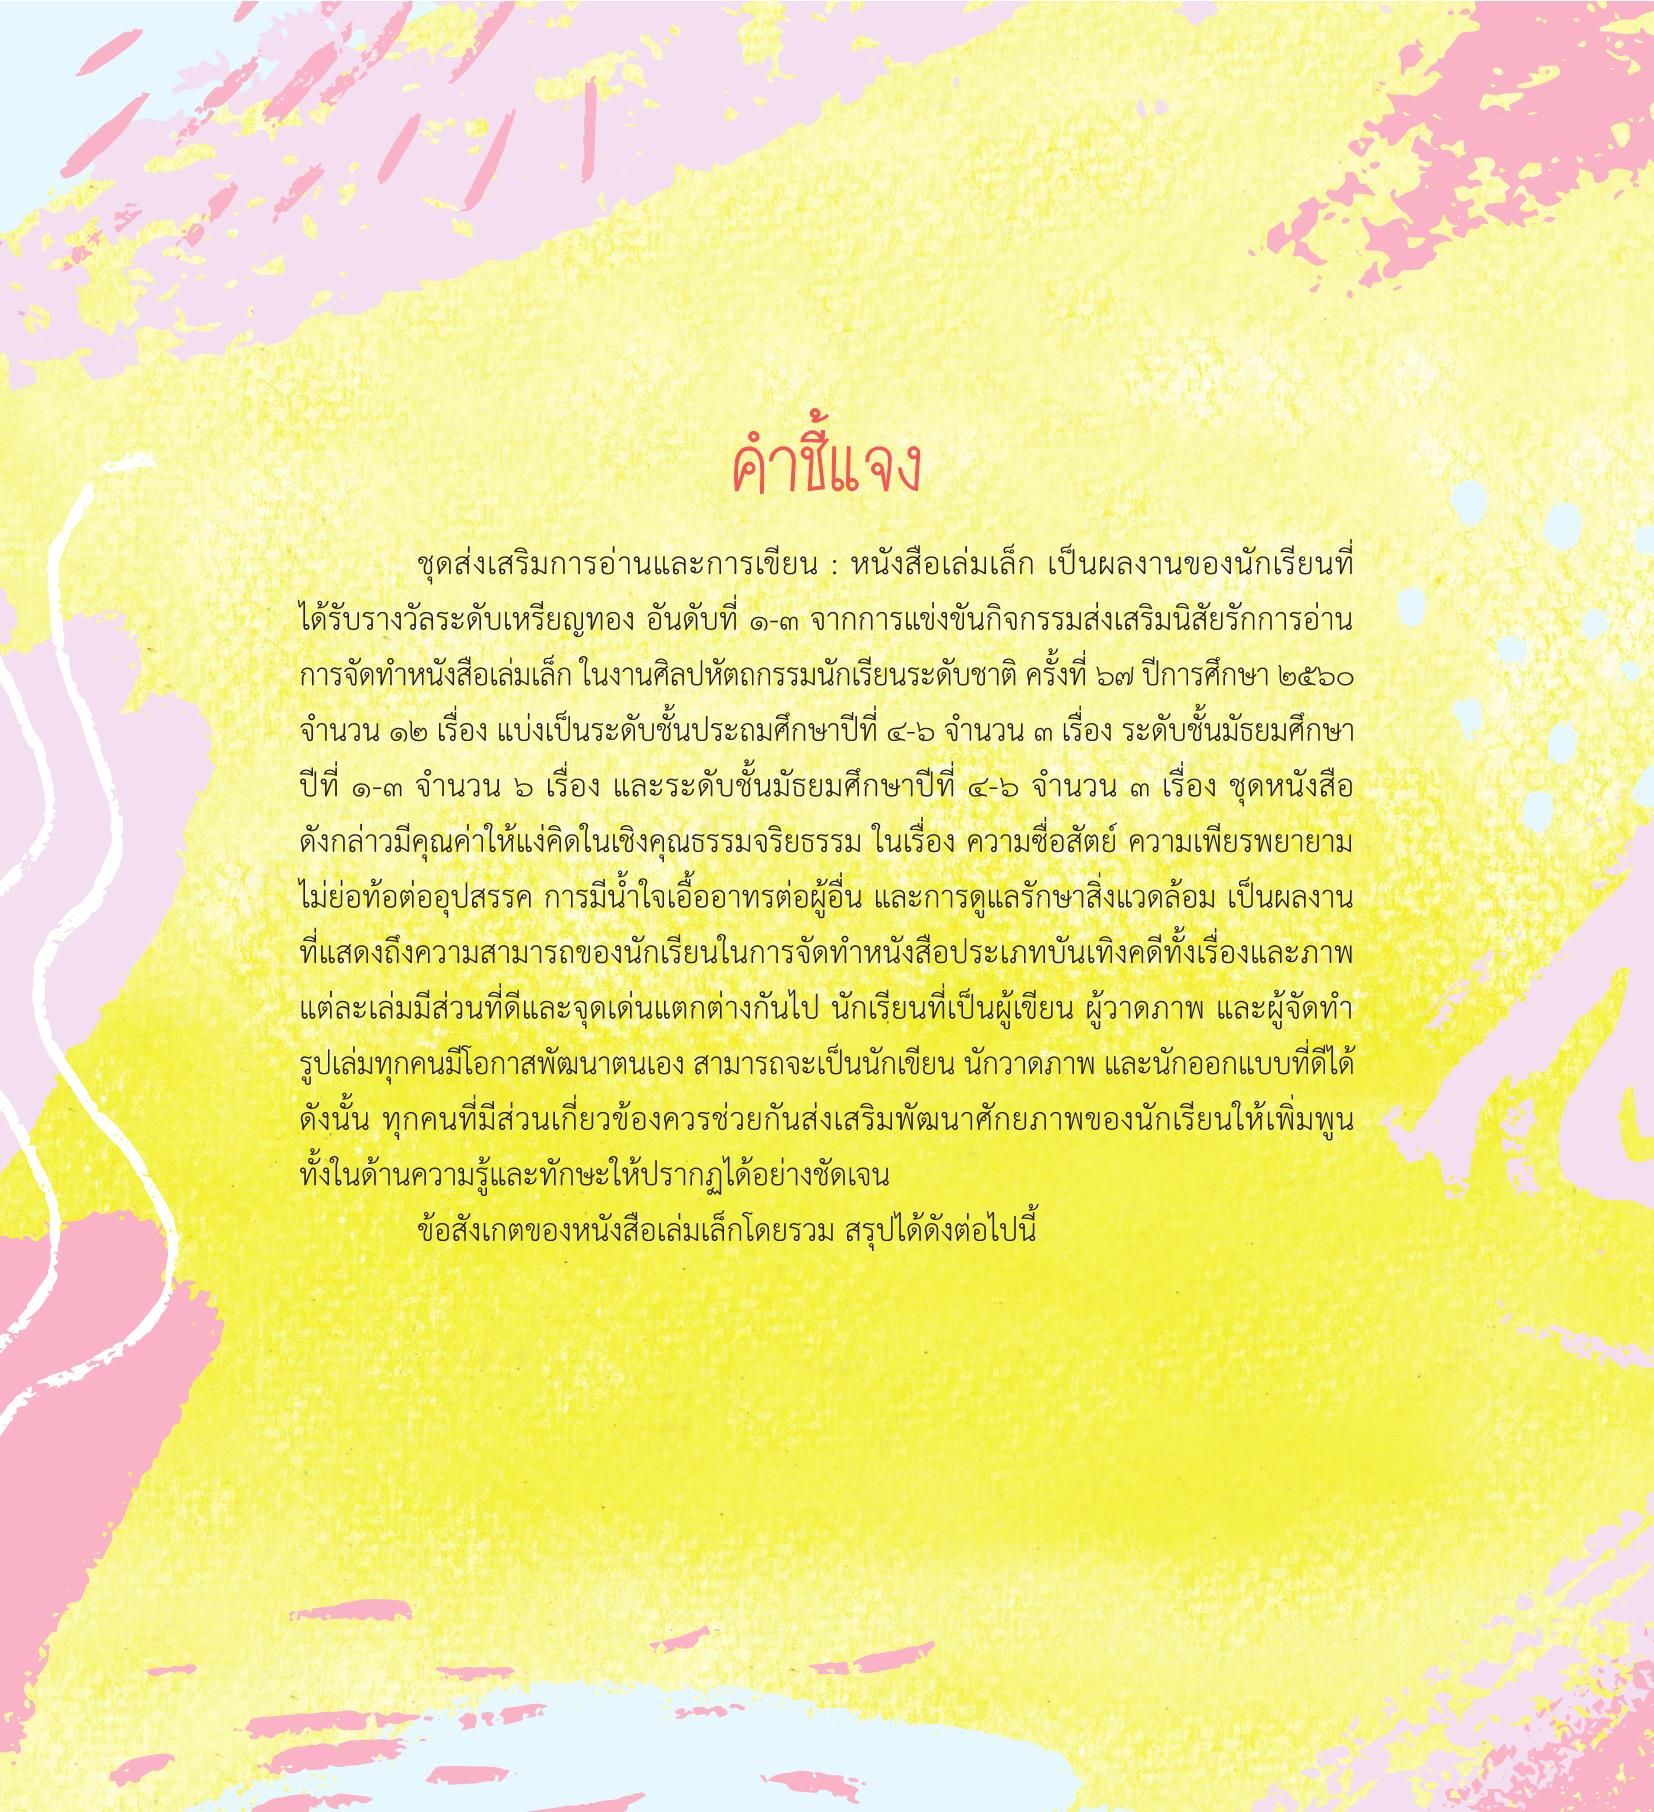 คำชี้แจง
ชุดส่งเสริมการอ่านและการเขียน : หนังสือเล่มเล็ก เป็นผลงานของนักเรียนที่
ได้รับรางวัลระดับเหรียญทอง อันดับที่ ๑-๓ จากการแข่งขันกิจกรรมส่งเสริมนิสัยรักการอ่าน
การจัดทำหนังสือเล่มเล็ก ในงานศิลปหัตถกรรมนักเรียนระดับชาติ ครั้งที่ ๖๗ ปีการศึกษา ๒๕๖๐
จำนวน ๑๒ เรื่อง แบ่งเป็นระดับชั้นประถมศึกษาปีที่ ๔-๖ จำนวน ๓ เรื่อง ระดับชั้นมัธยมศึกษา
ปีที่ ๑-๓ จำนวน ๖ เรื่อง และระดับชั้นมัธยมศึกษาปีที่ ๔-๖ จำนวน ๓ เรื่อง ชุดหนังสือ
ดังกล่าวมีคุณค่าให้แง่คิดในเชิงคุณธรรมจริยธรรม ในเรื่อง ความซื่อสัตย์ ความเพียรพยายาม
ไม่ย่อท้อต่ออุปสรรค การมีน้ำใจเอื้ออาทรต่อผู้อื่น และการดูแลรักษาสิ่งแวดล้อม เป็นผลงาน
ที่แสดงถึงความสามารถของนักเรียนในการจัดทำหนังสือประเภทบันเทิงคดีทั้งเรื่องและภาพ
แต่ละเล่มมีส่วนที่ดีและจุดเด่นแตกต่างกันไป นักเรียนที่เป็นผู้เขียน ผู้วาดภาพ และผู้จัดทำ
รูปเล่มทุกคนมีโอกาสพัฒนาตนเอง สามารถจะเป็นนักเขียน นักวาดภาพ และนักออกแบบที่ดีได้
ดังนั้น ทุกคนที่มีส่วนเกี่ยวข้องควรช่วยกันส่งเสริมพัฒนาศักยภาพของนักเรียนให้เพิ่มพูน
ทั้งในด้านความรู้และทักษะให้ปรากฏได้อย่างชัดเจน
ข้อสังเกตของหนังสือเล่มเล็กโดยรวม สรุปได้ดังต่อไปนี้